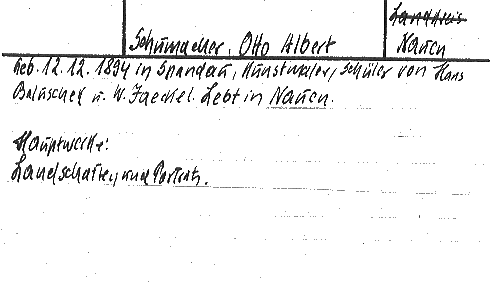 Schumacher, Otto Albert
Landkreis
Nauen
Geb. 12.12.1894 in Spandau, Kunstmaler, Schüler von Hans
Baluschek u. W. Jaeckel. Lebt in Nauen.
Hauptwerke:
Landschaften und Porträts.